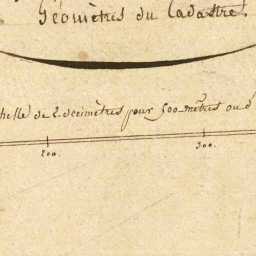 Géomètres du Cadastre.
helle de 2. décimètres pour 500 mètres ou d
200. 300.